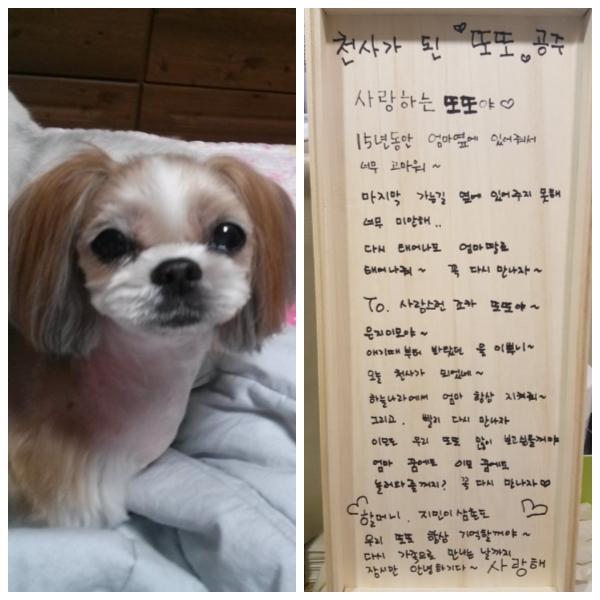 천사가 된 또또 공주
사랑하는 또또야 ♡
15년동안 엄마옆에 있어줘서
너무 고마워 ~
마지막 가는길 옆에 있어주지 못해
너무 미안해..
다시 태어나도 엄마딸로
태어나줘 ~ 꼭 다시 만나자 ~
To. 사랑스런 조카 또또야 ~
은지이모야 ~
애기때부터 봐왔던 울 이쁘니 ~
오늘 천사가 되었네 ~
하늘나라에서 엄마 항상 지켜줘 ~
그리고, 빨리 다시 만나자
이모도 우리 또또 많이 보고싶을꺼야
엄마 꿈에도 이모 꿈에도
놀러와줄꺼지? 꼭 다시 만나자 ♡
할머니, 지민이삼촌도
우리 또또 항상 기억할께야 ~
다시 가족으로 만나는 날까지
잠시만 안녕하기다 ~ 사랑해